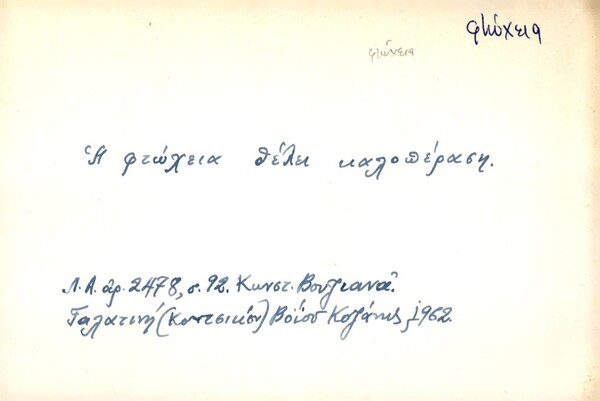 φτώχεια
φτώχεια
Ἡ φτώχεια θέλει καλοπέραση.
Λ.Α. ἀρ. 2478, σ. 92. Κωνστ. Βουζιανᾶ.
Γαλατινή (Κοντσικόν) Βοΐου Κοζάνης, 1962.